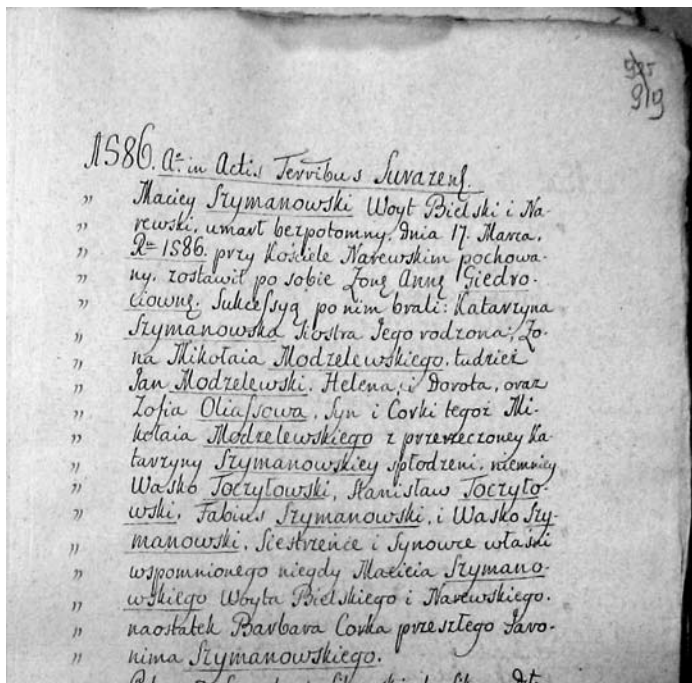 925
919
1586. Aº. in Actis Terribus Surazens.
" Maciey Szymanowski Woyt Bielski i Na-
" rewski, umarł bezpotomny, Dnia 17. Marca,
" Rº 1586. przy Kościele Narewskim pochowa-
" ny. zostawił po sobie Żonę Annę Giedro-
" ciownę. Sukcessyą po nim brali: Katarzyna
" Szymanowska Siostra Jego rodzona, Żo-
" na Mikołaia Modzelewskiego, tudzież
" Jan Modzelewski. Helena, i Dorota, oraz
" Zofia Oliassowa, Syn i Corki tegoż Mi-
" kołaia Modzelewskiego z przerzeczoney Ka-
" tarzyny Szymanowskiey spłodzeni, niemniey
" Wasko Toczyłowski, Stanisław Toczyło-
" wski, Fabius Szymanowski, i Wasko Szy-
" manowski, Siestrzeńce i Synowce właśni
" wspomnionego niegdy Macieia Szymano-
" wskiego Woyta Bielskiego i Narewskiego.
" naostatek Barbara Corka przeszłego Jaro-
" nima Szymanowskiego.